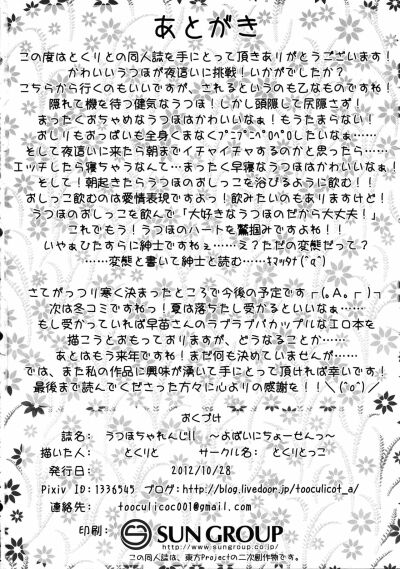 あとがき
この度はとくりとの同人誌を手にとって頂きありがとうございます!
かわいいうつほが夜這いに挑戦!いかがでしたか?
こちらから行くのもいいですが、されるというのも乙なものですね!
隠れて機を待つ健気なうつほ!しかし頭隠して尻隠さず!
まったくおちゃめなうつほはかわいいなぁ!もうたまらない!
おしりもおっぱいも全身くまなくプニプニペロペロしたいなぁ……
そして夜這いに来たら朝までイチャイチャするのかと思ったら……
エッチしたら寝ちゃうなんて…まったく早寝なうつほはかわいいなぁ!
そして!朝起きたらうつほのおしっこを浴びるように飲む!!
おしっこ飲むのは愛情表現ですよっ!飲みたいのもありますけど!
うつほのおしっこを飲んで「大好きなうつほのだから大丈夫!」
これでもう!うつほのハートを鷲掴みですよね!!
いやぁひたすらに紳士ですねぇ……え?ただの変態だって?
……変態と書いて紳士と読む……キマッタナ(^q^)
さてがっつり寒く決まったところで今後の予定です┌(。A。┌)┐
次は冬コミですねっ!夏は落ちたし受かるといいなぁ……
もし受かっていれば早苗さんのラブラブバカップルなエロ本を
描こうとおもっておりますが、どうなることか……
あとはもう来年ですね!まだ何も決めていませんが……
では、また私の作品に興味が湧いて手にとって頂ければ幸いです!
最後まで読んでくださった方々に心よりの感謝を!!＼(^o^)／
おくづけ
誌名: うつほちゃれんじ!! ～よばいにちょーせんっ～
描いた人: とくりと サークル名: とくりとっこ
発行日: 2012/10/28
Pixiv ID:1336545 ブログ:http://blog.livedoor.jp/tooculicot_a/
連絡先: tooculicoc001@gmail.com
印刷: SUN GROUP
http://www.sungroup.co.jp/
この同人誌は、東方Projectの二次創作物です。